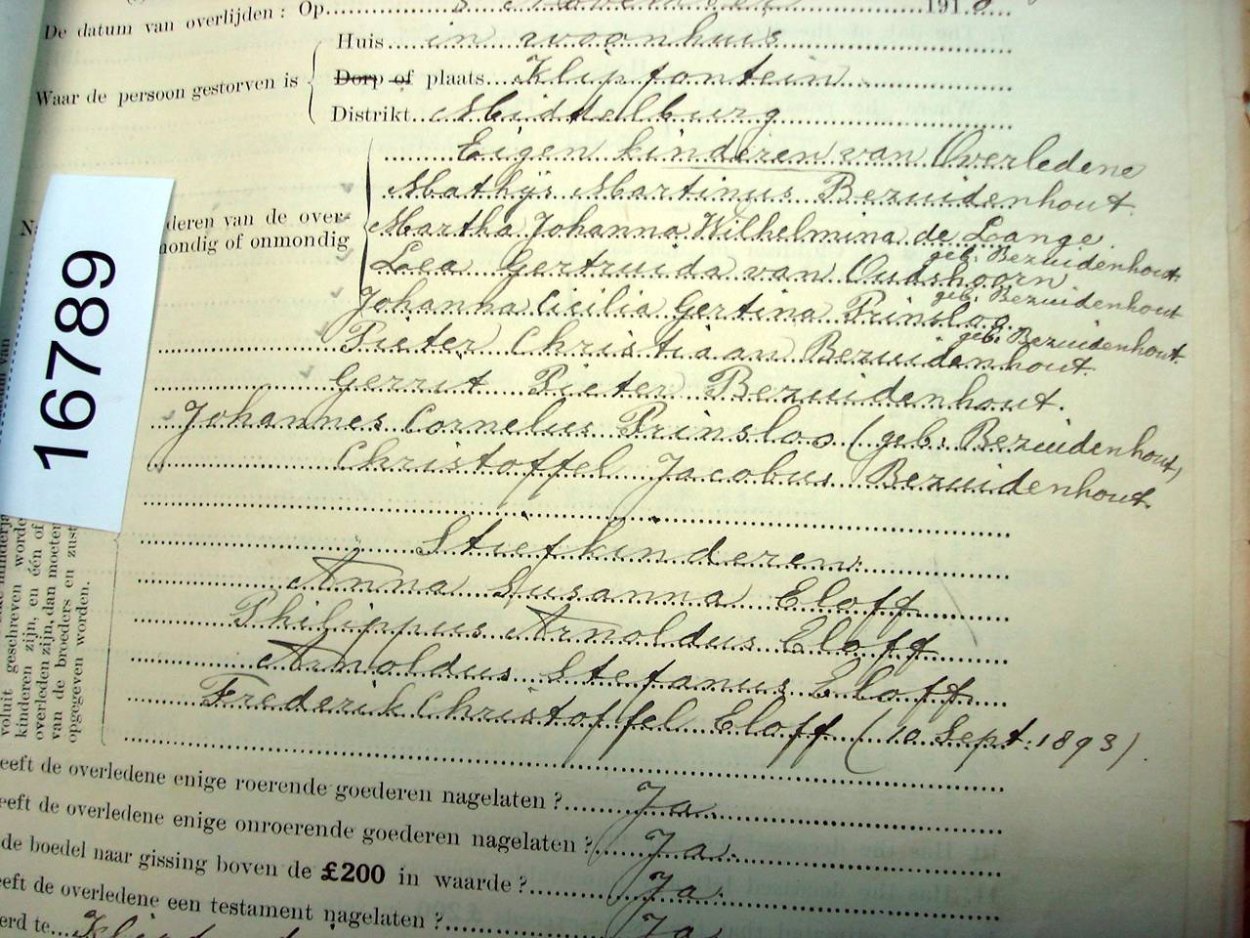 De datum van overlijden : Op November 1918
Huis in woonhuis
Waar de persoon gestorven is
Dorp of plaats Klipfontein
Distrikt Middelburg
Eigen kinderen van Overledene
Mathys Martinus Bezuidenhout.
deren van de over-
Martha Johanna Wilhelmina de Lange.
mondig of onmondig
geb: Bezuidenhout
Lea Gertruida van Oudshoorn
geb: Bezuidenhout
Johanna Cicilia Gertina Prinsloo
geb: Bezuidenhout
Pieter Christiaan Bezuidenhout.
Gerrit Pieter Bezuidenhout.
Johannes Cornelus Prinsloo (geb: Bezuidenhout)
Christoffel Jacobus Bezuidenhout.
Stiefkinderen:
Anna Susanna Eloff
Philippus Arnoldus Eloff
Arnoldus Stefanus Eloff
Frederik Christoffel Eloff (10 Sept: 1893).
16789
voluit geschreven worde
kinderen zijn, en één of
overleden zijn, dan moeten
van de broeders en zust
opgegeven worden.
eeft de overledene enige roerende goederen nagelaten ? Ja.
eeft de overledene enige onroerende goederen nagelaten ? Ja.
de boedel naar gissing boven de £200 in waarde ? Ja.
eeft de overledene een testament nagelaten ? Ja
erd te